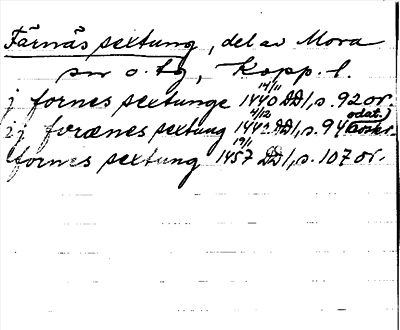 Färnäs sextung, del av Mora
sn o. tg, Kopp. l.
j fornes sextunge 14/11 1440 DD 1, s. 92 or.
i j forænes sextung 4/12 DD 1, s. 94 odat.) avskr.
fornes sextung 19/1 1457 DD 1, s. 107 or.